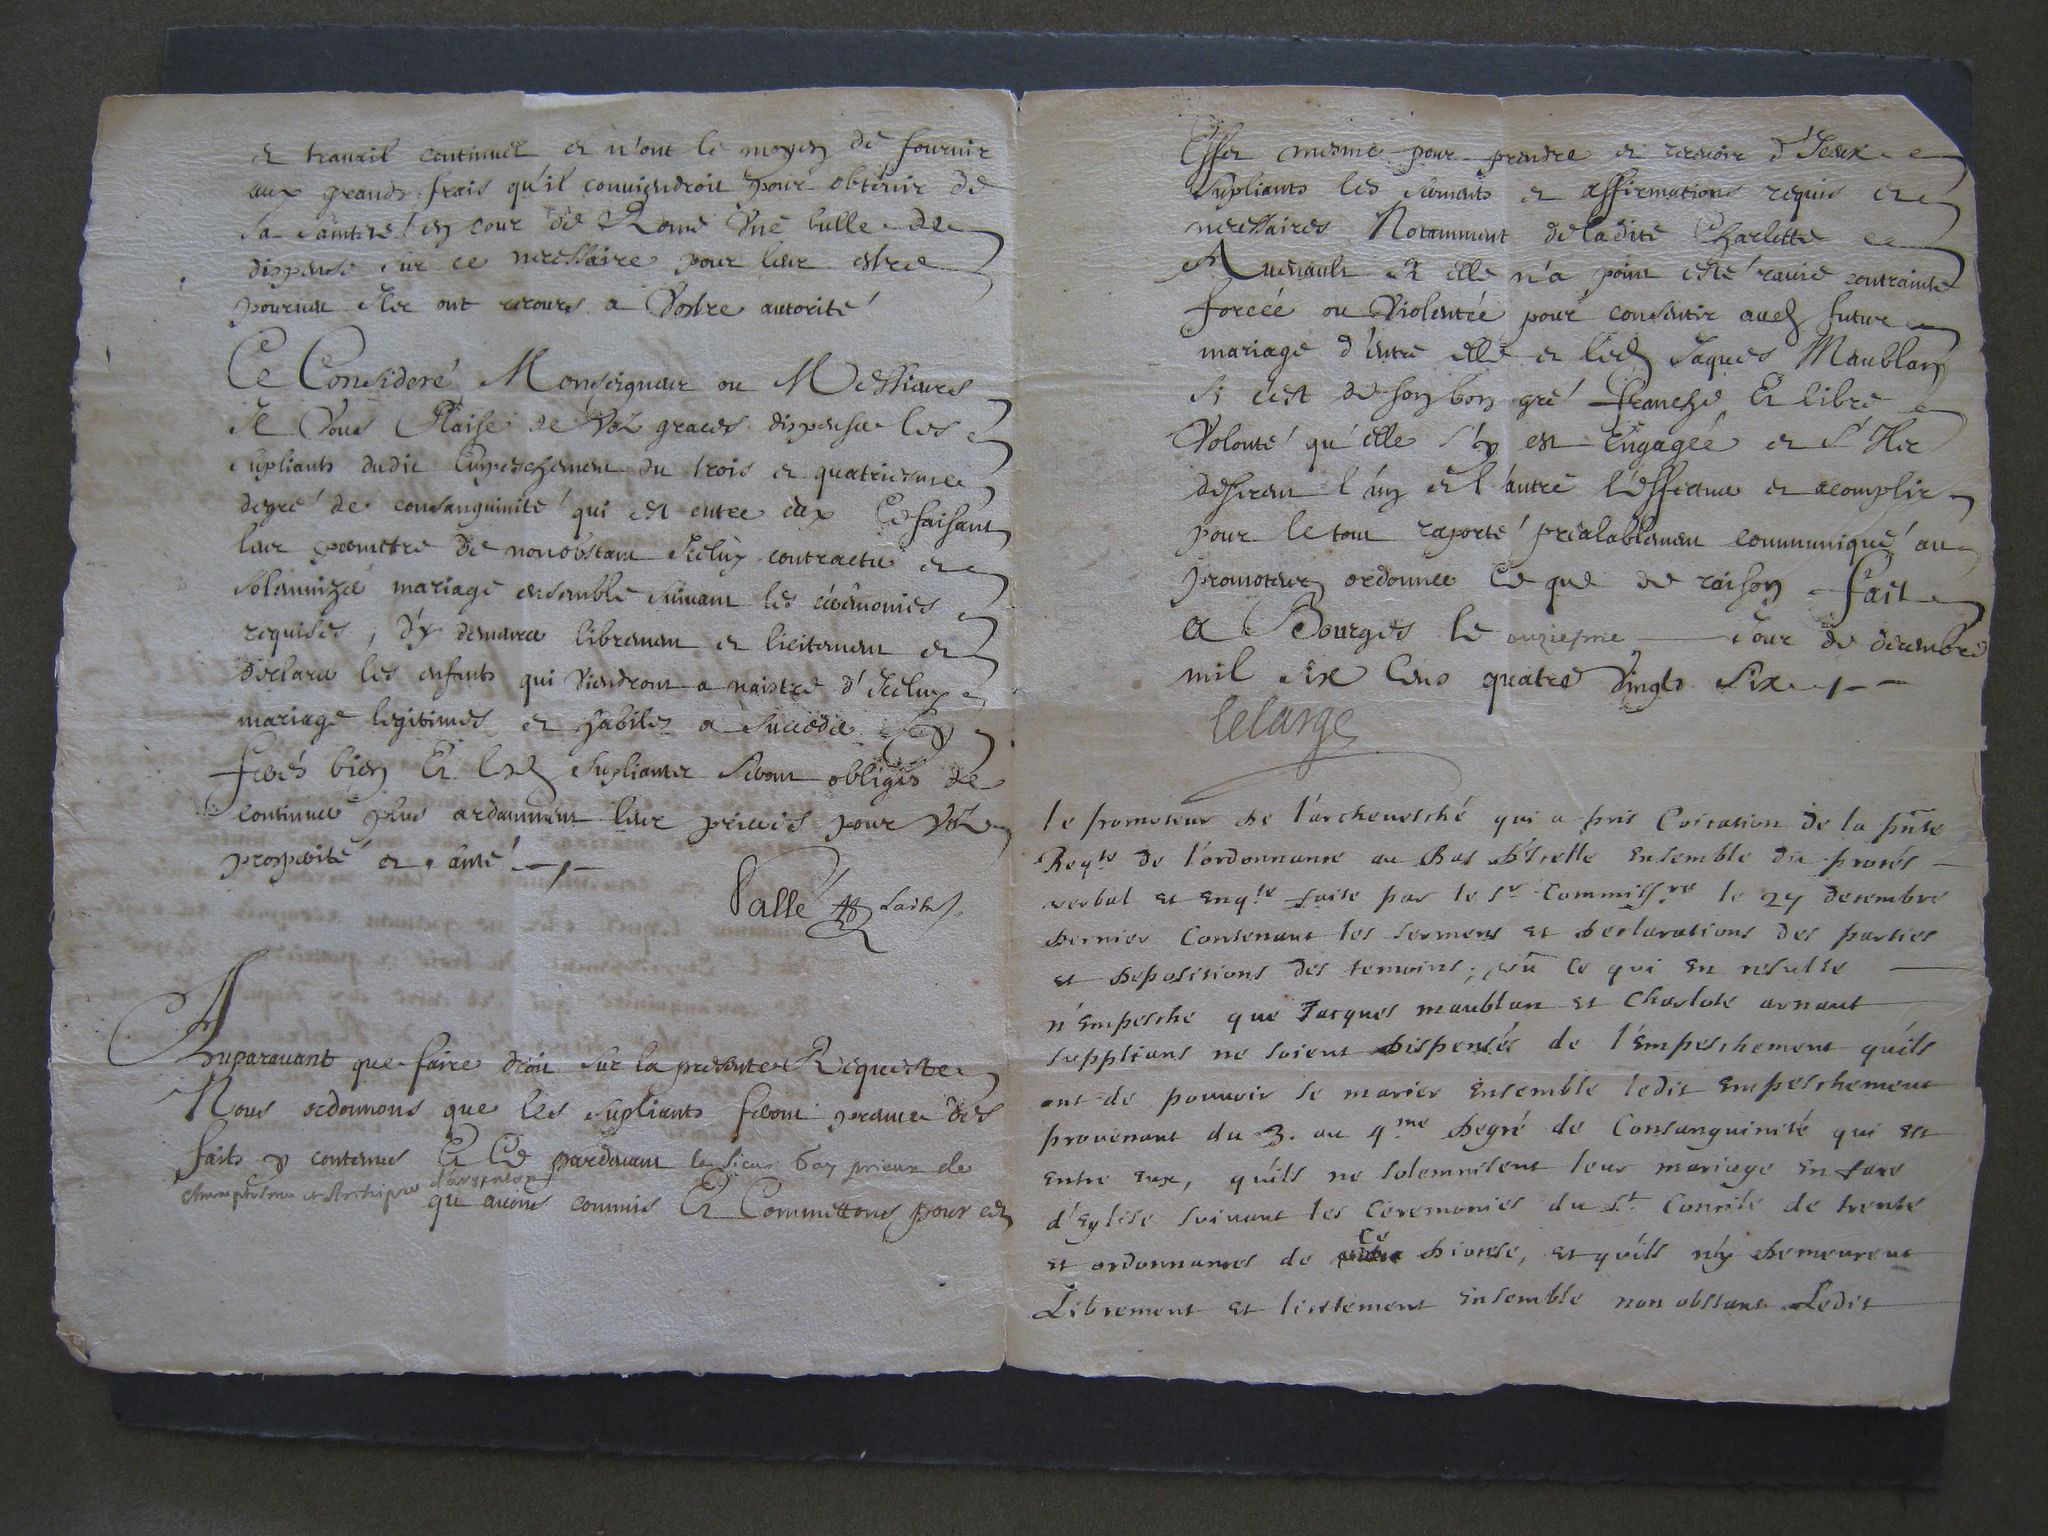 et travail continuel et n'ont le moyen de fournir
aux grands frais qu'il conviendroit pour obtenir de
sa sainteté en cour de Rome Une bulle de
dispense sur ce necessaire pour leur estre
pourveu Ilz ont recours a Vostre autorité
Ce Consideré Monseigneur ou Messieurs
Il Vous Plaise de Voz graces dispenser les
supliants dudit Empeschement du trois et quatriesme
degré de consanguinité qui est entre eux Ce faisant
leur permettre de nonobstant Iceluy contracter et
solemnizer mariage ensemble suivant les céremonies
requises, d'y demeurer librement et licitement et
declarer les enfants qui viendront a naistre d'Iceluy
mariage legitimes et habiles a succeder
ferés bien Et lesd supliants seront obligés de
continuer plus ardamment leur prieres pour Voz
prosperité et santé
Pallé
Auparavant que faire droit sur la presente Requeste
Nous ordonnons que les supliants feront preuve des
faits y contenus Et Ce pardevant le sieur Gay prieur de
et Archipre d'argenton
que avons commis Et Commettons pour cet
Effet mesme pour prendre et recevoir d'Iceux
supliants les serments et affirmations requis et
necessaires Notamment deladite Charlotte
Arnault si elle n'a point esté ravie contrainte
forcée ou Violentée pour consentir aud futur
mariage d'entre elle et led Jaques Maublan
si c'est de son bon gré franche Et libre
Volonté qu'elle s'y est Engagée et s'Ilz
desirent l'un et l'autre l'effectuer et acomplir
pour le tout raporté prealablement communiqué au
promoteur ordonner Ce que de raison Fait
a Bourges le onziesme Jour de decembre
mil six Cens quatre Vingts Six
Lelarge
le promoteur de l'archevesché qui a pris Co͞ication de la pn͞te
Reqte de l'ordonnance au Bas d'icelle ensemble du procés
verbal et enqte faite par le Sr Commissre le 27 decembre
dernier Contenant les sermens et declarations des parties
et depositions des temoins; veu ce qui en resulte
n'empesche que Jacques maublan et Charlote arnaut
supplians ne soient dispensés de l'empeschement qu'ils
ont de pouvoir se marier ensemble ledit empeschement
provenant du 3. au 4me degré de Consanguinité qui est
entre eux, qu'ils ne solemnisent leur mariage en face
d'eglise suivant les Ceremonies du St Concile de trente
et ordonnances de ce diocese, et qu'ils n'y demeurent
Librement et licitement ensemble non obstant Ledit